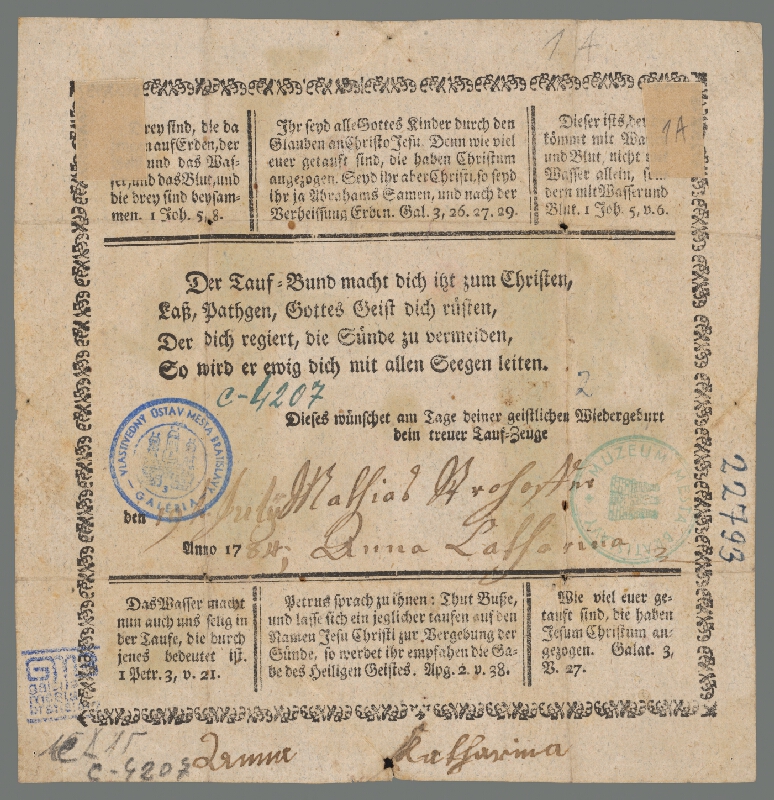 1 A
rey sind, die da
n auf Erden, der
und das Was-
ser, und das Blut, und
die drey sind beysam-
men. 1 Joh. 5, 8.
Ihr seyd alle Gottes Kinder durch den
Glauben an Christo Jesu. Denn wie viel
euer getauft sind, die haben Christum
angezogen. Seyd ihr aber Christi, so seyd
ihr ja Abrahams Samen, und nach der
Verheissung Erben. Gal. 3, 26. 27. 29.
Dieser ists, der
kömmt mit Wa
und Blut, nicht
Wasser allein, son
dern mit Wasser und
Blut. 1 Joh. 5, v. 6.
1A
Der Tauf-Bund macht dich itzt zum Christen,
Laß, Pathgen, Gottes Geist dich rüsten,
Der dich regiert, die Sünde zu vermeiden,
So wird er ewig dich mit allen Seegen leiten.
C-4207
2
Dieses wünschet am Tage deiner geistlichen Wiedergeburt
dein treuer Tauf-Zeuge
VLASTIVEDNÝ ÚSTAV MESTA BRATISLAVY
3
GALÉRIA
MÚZEUM
22793
den July Mathias
Anno 1784, Anna Catharina
Das Wasser macht
nun auch uns selig in
der Taufe, die durch
jenes bedeutet ist.
1 Petr. 3, v. 21.
Petrus sprach zu ihnen: Thut Buße,
und lasse sich ein jeglicher taufen auf den
Namen Jesu Christi zur Vergebung der
Sünde, so werdet ihr empfahen die Ga-
be des Heiligen Geistes. Apg. 2. v. 38.
Wie viel euer ge-
tauft sind, die haben
Jesum Christum an-
gezogen. Galat. 3,
V. 27.
C-4207
Anna Katharina